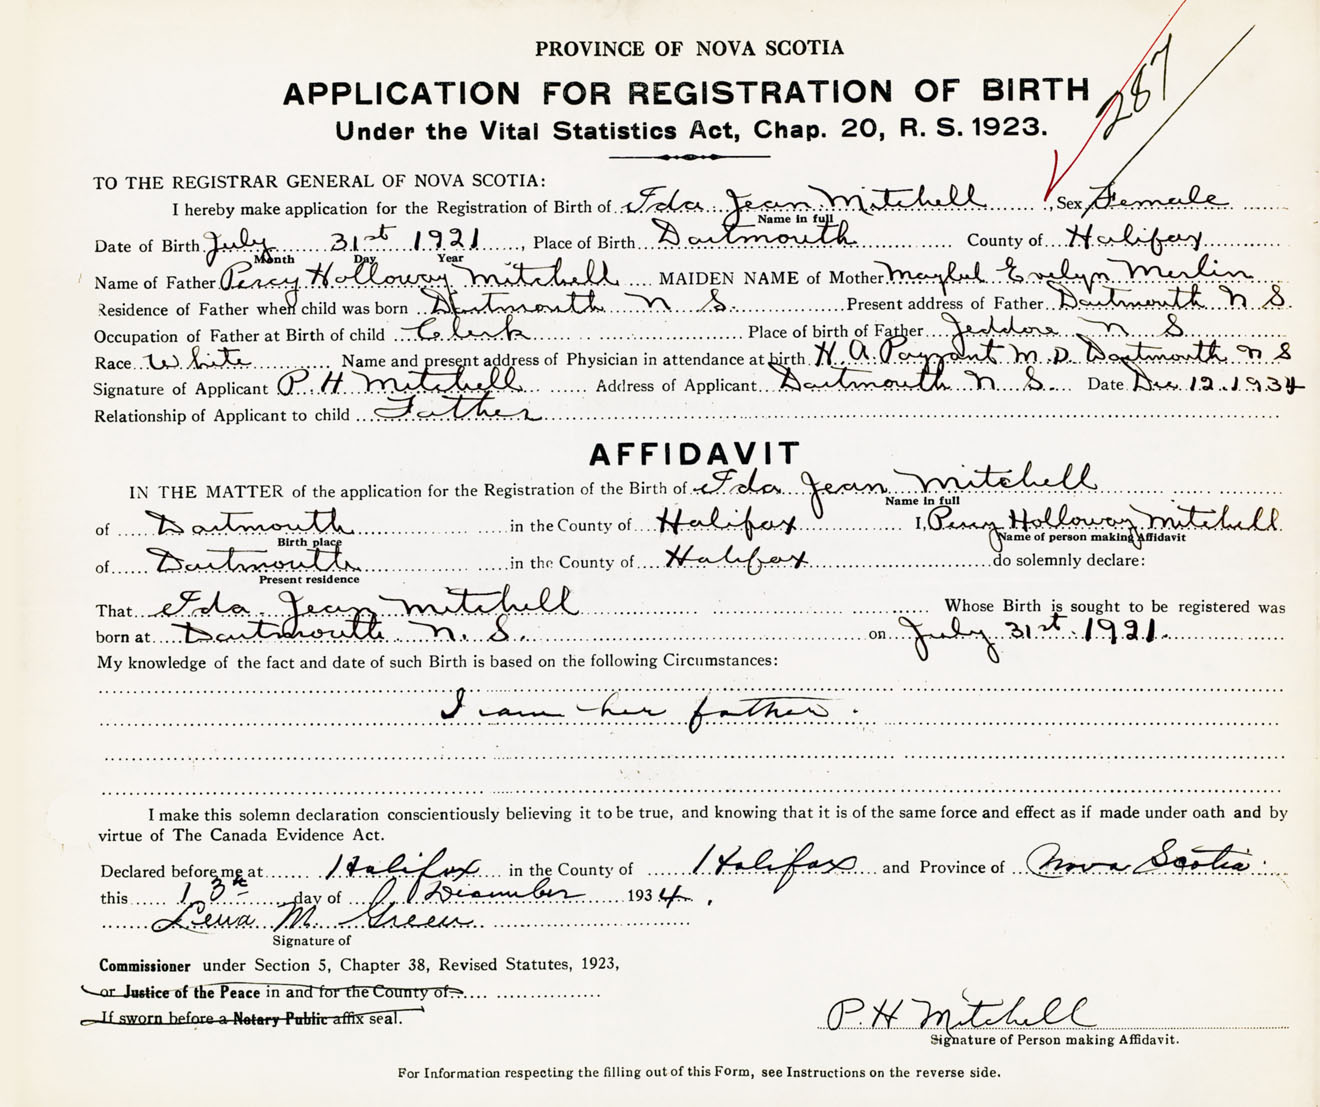 PROVINCE OF NOVA SCOTIA
287
APPLICATION FOR REGISTRATION OF BIRTH
Under the Vital Statistics Act, Chap. 20, R. S. 1923.
TO THE REGISTRAR GENERAL OF NOVA SCOTIA:
I hereby make application for the Registration of Birth of Ida Jean Mitchell, Sex Female
Name in full
Date of Birth July 31st 1921, Place of Birth Dartmouth County of Halifax
Month Day Year
Name of Father Percy Holloway Mitchell MAIDEN NAME of Mother Evelyn Merlin
Residence of Father when child was born Dartmouth N S. Present address of Father Dartmouth N S.
Occupation of Father at Birth of child Clerk Place of birth of Father Jeddore N S
Race White Name and present address of Physician in attendance at birth H. A. Payzant M. D. Dartmouth N S
Signature of Applicant P. H. Mitchell Address of Applicant Dartmouth N S. Date Dec 12. 1934
Relationship of Applicant to child Father
AFFIDAVIT
IN THE MATTER of the application for the Registration of the Birth of Ida Jean Mitchell
Name in full
of Dartmouth in the County of Halifax I, Percy Holloway Mitchell
Birth place Name of person making Affidavit
of Dartmouth in the County of Halifax do solemnly declare:
Present residence
That Ida Jean Mitchell Whose Birth is sought to be registered was
born at Dartmouth N. S. on July 31st. 1921.
My knowledge of the fact and date of such Birth is based on the following Circumstances:
I am her father.
I make this solemn declaration conscientiously believing it to be true, and knowing that it is of the same force and effect as if made under oath and by
virtue of The Canada Evidence Act.
Declared before me at Halifax in the County of Halifax and Province of Nova Scotia
this 13th day of December 1934.
Lena M. Green
Signature of
Commissioner under Section 5, Chapter 38, Revised Statutes, 1923,
or Justice of the Peace in and for the County of
If sworn before a Notary Public affix seal.
P. H Mitchell
Signature of Person making Affidavit.
For Information respecting the filling out of this Form, see Instructions on the reverse side.